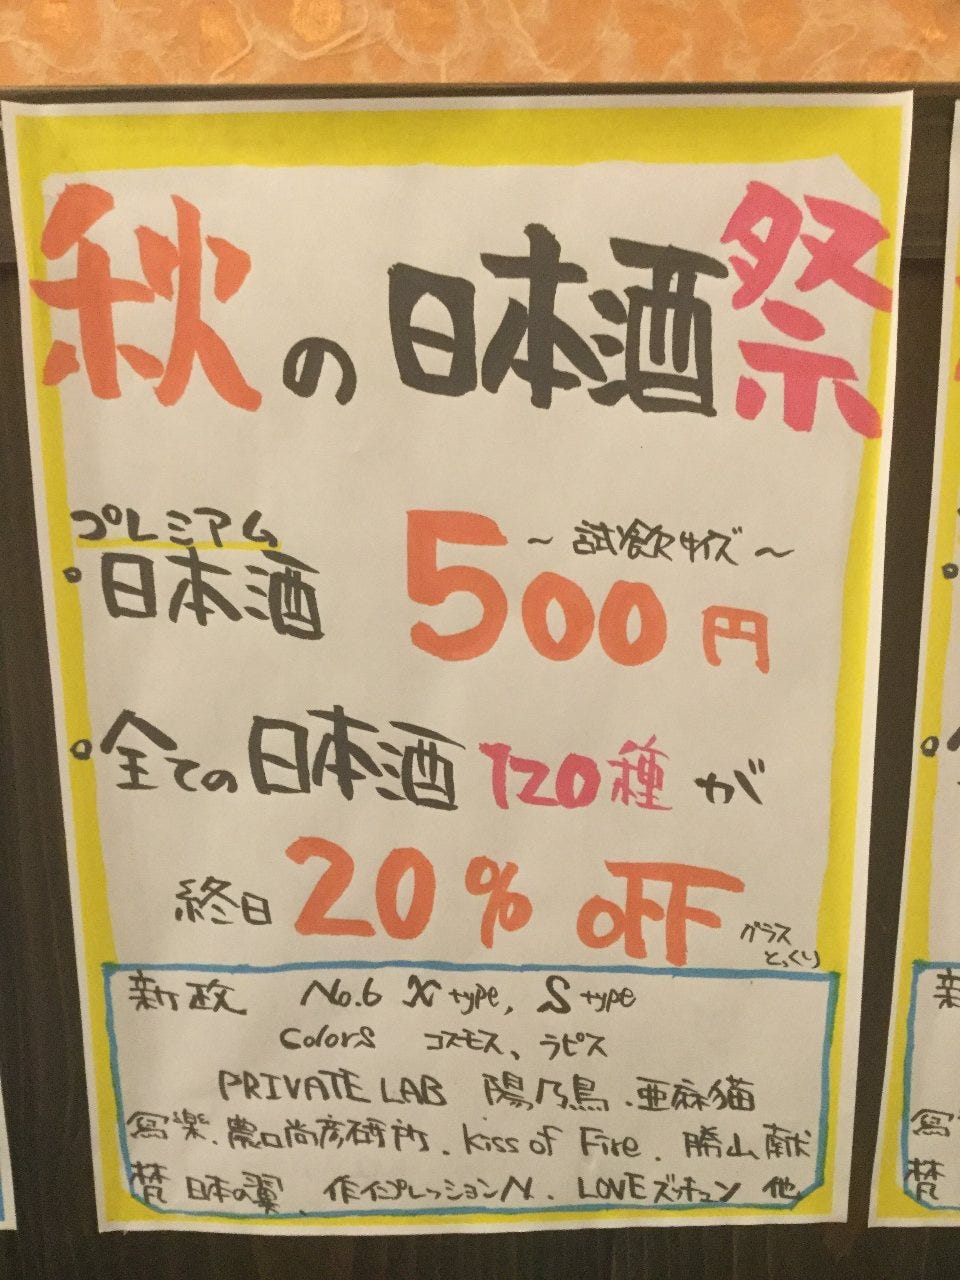 秋の日本酒祭
プレミアム
。日本酒 500円
～試飲サイズ～
。全ての日本酒120種が
終日20%OFF
グラス
とっくり
新政 No.6 X type, S type
Colors コスモス、ラピス
PRIVATE LAB 陽乃鳥.亜麻猫
寫楽.農口尚彦研究所.Kiss of Fire.勝山 献
梵 日本の翼.作インプレッションN.LOVEズッキュン 他